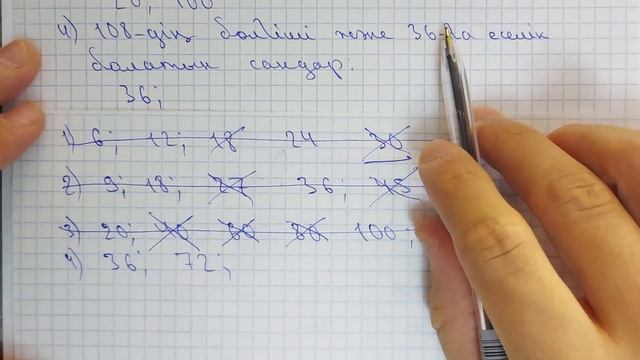 20; 100
4) 108-дің бөлгіші және 36-ға еселік
болатын сандар:
36;
1) 6; 12; 18 24 30
2) 9; 18; 27 36; 45
3) 20; 40 60 80 100;
4) 36; 72;